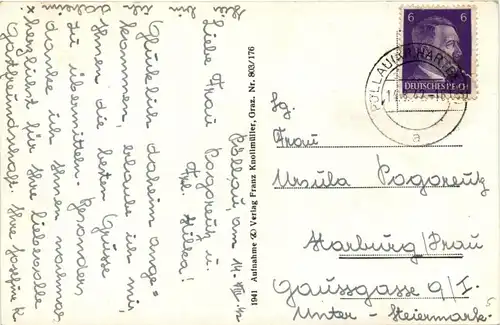 Pöllau am 14. VIII. 42
Liebe Frau Pogoreutz u.
Frl. Hilka!
Glücklich daheim ange-
kommen, erlaube ich mir,
Ihnen die besten Grüsse
zu übermitteln. Besonders
danke ich Ihnen nochmals
herzlichst für Ihre liebevolle
Gastfreundschaft. Ihre Josefine K.
1941 Aufnahme u. Verlag Franz Knollmüller, Graz. Nr. 803/176
6 6
DEUTSCHES REICH
PÖLLAU
a
Sg.
Frau
Ursula Pogoreutz
Marburg/Drau
Gaussgasse 9/I.
Unter-Steiermark.